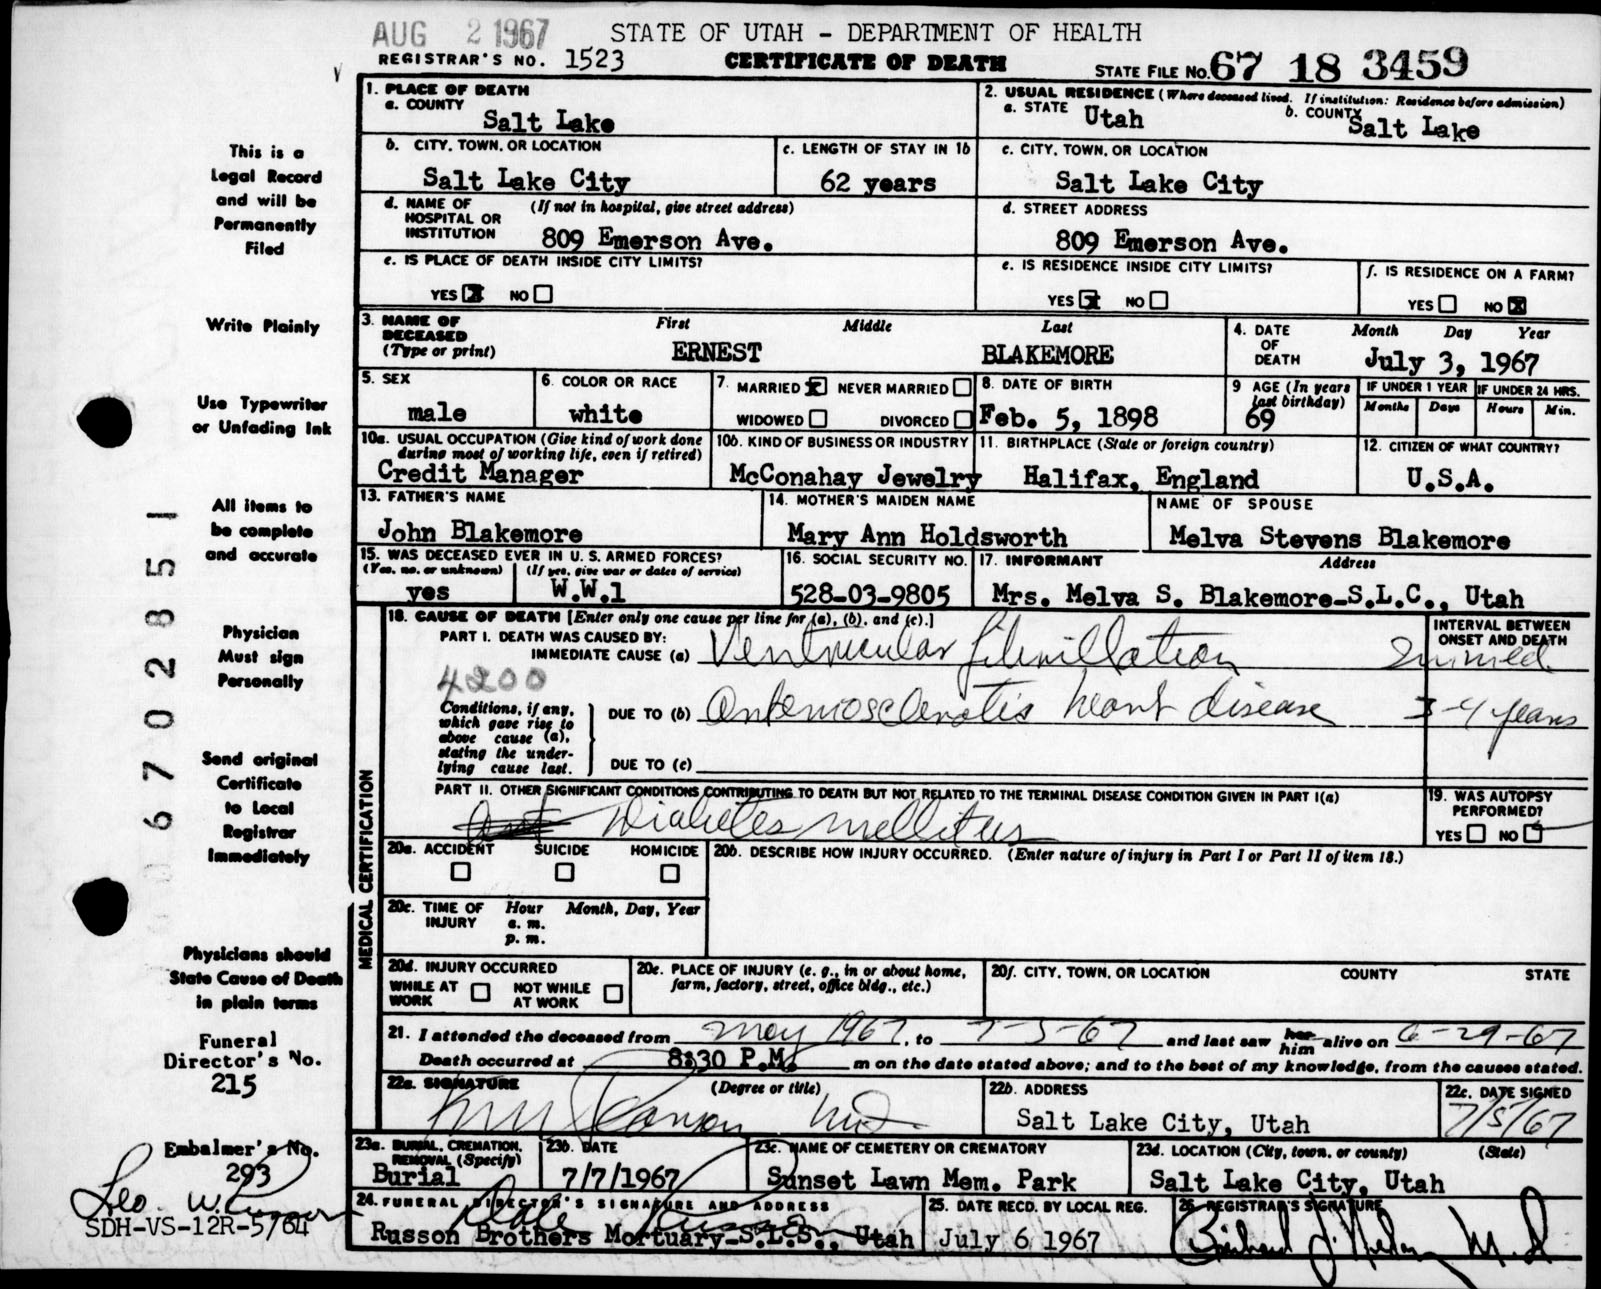 AUG 2 1967
STATE OF UTAH - DEPARTMENT OF HEALTH
REGISTRAR'S NO. 1523
CERTIFICATE OF DEATH
STATE FILE NO. 67 18 3459
This is a
Legal Record
and will be
Permanently
Filed
Write Plainly
Use Typewriter
or Unfading Ink
All items to
be complete
and accurate
Physician
Must sign
Personally
Send original
Certificate
to Local
Registrar
Immediately
Physicians should
State Cause of Death
in plain terms
Funeral
Director's No.
215
Embalmer's No.
293
Leo W. Russon
SDH-VS-12R-5/64
0 6 7 0 2 8 5 1
1. PLACE OF DEATH
a. COUNTY
Salt Lake
2. USUAL RESIDENCE (Where deceased lived. If institution: Residence before admission)
a. STATE Utah
b. COUNTY Salt Lake
b. CITY, TOWN, OR LOCATION
Salt Lake City
c. LENGTH OF STAY IN 1b
62 years
c. CITY, TOWN, OR LOCATION
Salt Lake City
d. NAME OF HOSPITAL OR INSTITUTION (If not in hospital, give street address)
809 Emerson Ave.
d. STREET ADDRESS
809 Emerson Ave.
e. IS PLACE OF DEATH INSIDE CITY LIMITS?
YES X NO
e. IS RESIDENCE INSIDE CITY LIMITS?
YES X NO
f. IS RESIDENCE ON A FARM?
YES NO X
3. NAME OF DECEASED (Type or print)
First Middle Last
ERNEST BLAKEMORE
4. DATE OF DEATH Month Day Year
July 3, 1967
5. SEX
male
6. COLOR OR RACE
white
7. MARRIED X NEVER MARRIED
WIDOWED DIVORCED
8. DATE OF BIRTH
Feb. 5, 1898
9 AGE (In years last birthday)
69
IF UNDER 1 YEAR
Months Days
IF UNDER 24 HRS.
Hours Min.
10a. USUAL OCCUPATION (Give kind of work done during most of working life, even if retired)
Credit Manager
10b. KIND OF BUSINESS OR INDUSTRY
McConahay Jewelry
11. BIRTHPLACE (State or foreign country)
Halifax, England
12. CITIZEN OF WHAT COUNTRY?
U.S.A.
13. FATHER'S NAME
John Blakemore
14. MOTHER'S MAIDEN NAME
Mary Ann Holdsworth
NAME OF SPOUSE
Melva Stevens Blakemore
15. WAS DECEASED EVER IN U. S. ARMED FORCES?
(Yes, no, or unknown) (If yes, give war or dates of service)
yes W.W.1
16. SOCIAL SECURITY NO.
528-03-9805
17. INFORMANT Address
Mrs. Melva S. Blakemore-S.L.C., Utah
MEDICAL CERTIFICATION
18. CAUSE OF DEATH [Enter only one cause per line for (a), (b), and (c).]
INTERVAL BETWEEN ONSET AND DEATH
PART I. DEATH WAS CAUSED BY:
IMMEDIATE CAUSE (a) Ventricular fibrillation immed.
4200
Conditions, if any, which gave rise to above cause (a), stating the underlying cause last.
DUE TO (b) Arteriosclerotic heart disease 3-4 years
DUE TO (c)
PART II. OTHER SIGNIFICANT CONDITIONS CONTRIBUTING TO DEATH BUT NOT RELATED TO THE TERMINAL DISEASE CONDITION GIVEN IN PART I(a)
Diabetes mellitus
19. WAS AUTOPSY PERFORMED?
YES NO
20a. ACCIDENT SUICIDE HOMICIDE
20b. DESCRIBE HOW INJURY OCCURRED. (Enter nature of injury in Part I or Part II of item 18.)
20c. TIME OF INJURY Hour Month, Day, Year
a. m.
p. m.
20d. INJURY OCCURRED
WHILE AT WORK NOT WHILE AT WORK
20e. PLACE OF INJURY (e. g., in or about home, farm, factory, street, office bldg., etc.)
20f. CITY, TOWN, OR LOCATION COUNTY STATE
21. I attended the deceased from May 1967, to 7-3-67 and last saw her him alive on 6-29-67
Death occurred at 8:30 P.M. m on the date stated above; and to the best of my knowledge, from the causes stated.
22a. SIGNATURE (Degree or title)
22b. ADDRESS
Salt Lake City, Utah
22c. DATE SIGNED
7/5/67
23a. BURIAL, CREMATION, REMOVAL (Specify)
Burial
23b. DATE
7/7/1967
23c. NAME OF CEMETERY OR CREMATORY
Sunset Lawn Mem. Park
23d. LOCATION (City, town, or county) (State)
Salt Lake City, Utah
24. FUNERAL DIRECTOR'S SIGNATURE AND ADDRESS
Dale Russon
Russon Brothers Mortuary-S.L.S., Utah
25. DATE RECD. BY LOCAL REG.
July 6 1967
26 REGISTRAR'S SIGNATURE